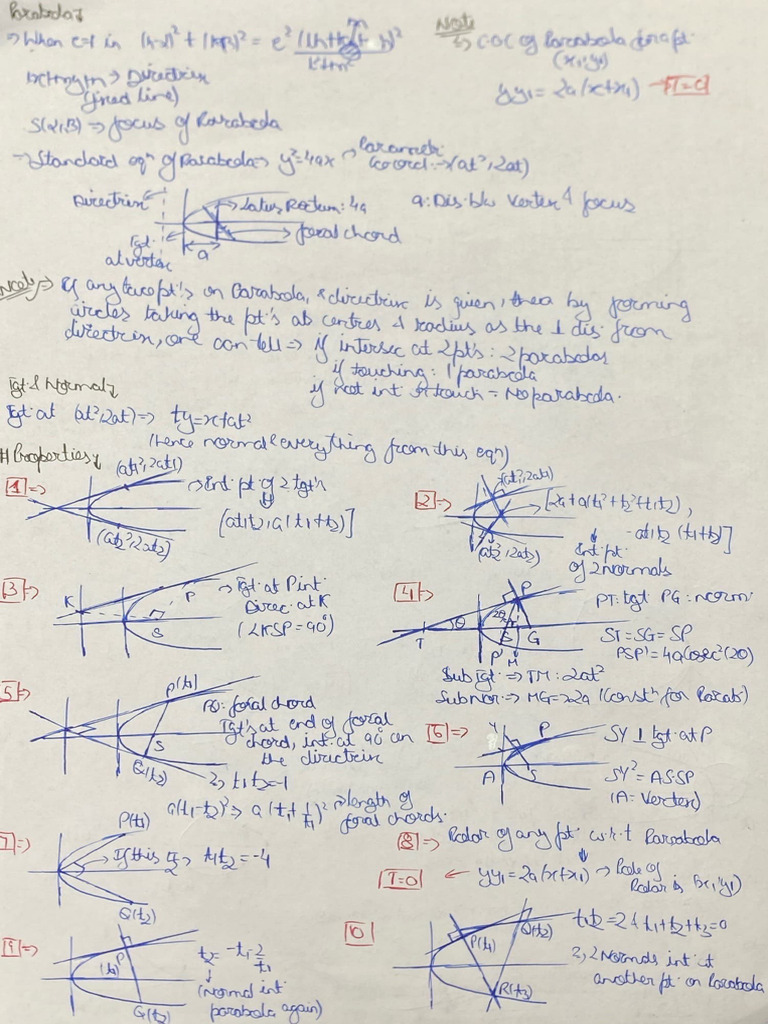 Parabola↓
→ When e=1 in (h-α)² + (k-β)² = e² (lh+mk+n)² / l²+m²
lx+my+n → Directrix
(fixed line)
S(α,β) ⇒ focus of Parabola
Note
↳ C.O.C of Parabola for a pt.
(x1,y1)
yy1 = 2a(x+x1) → T=0
→ Standard eqⁿ of Parabola → y²=4ax → Parametric
coord. → (at², 2at)
Directrix
Latus Rectum: 4a
a: Dis. b/w vertex & focus
focal chord
Tgt.
at vertex
a
Note → If any two pt's on Parabola, & directrix is given, then by forming
circles taking the pt's as centres & radius as the ⊥ dis. from
directrix, one can tell ⇒ if intersec at 2pt's : 2 parabolas
if touching : 1 parabola
if not int or touch = No parabola.
Tgt & Normal↓
Tgt. at (at², 2at) ⇒ ty=x+at²
(hence normal & everything from this eqⁿ)
# Properties↓
1 ⇒
(at1², 2at1)
→ Int. pt of 2 tgt's
[at1t2, a(t1+t2)]
(at2², 2at2)
2 ⇒
(at1², 2at1)
[2a+a(t1²+t2²+t1t2),
-at1t2(t1+t2)]
(at2², 2at2)
Int. pt.
of 2 normals
3 ⇒
K
P
S
→ Tgt. at P int.
Direc. at K
(∠KSP=90°)
4 ⇒
P
T
θ
2θ
S
G
P'
M
PT: tgt PG: norm.
ST=SG=SP
PSP'=4acosec²(2θ)
Sub Tgt ⇒ TM: 2at²
Sub Nor ⇒ MG=2a (constⁿ for Parab)
5 ⇒
P(t1)
S
Q(t2)
PQ: focal chord
Tgt's at end of focal
chord, int. at 90° on
the directrix
t1t2=-1
a(t1-t2)² ⇒ a(t1+1/t1)² → length of
focal chords.
6 ⇒
Y
P
A
S
SY ⊥ tgt. at P
SY²=AS.SP
(A: vertex)
7 ⇒
P(t1)
→ If this π/2 → t1t2=-4
Q(t2)
8 ⇒ Polar of any pt w.r.t Parabola
T=0 ← yy1=2a(x+x1) → Pole of
Polar is (x1,y1)
9 ⇒
P
(t1)
Q(t2)
t2=-t1-2/t1
(Normal int
parabola again)
10
P(t1)
Q(t2)
R(t3)
t1t2=2 & t1+t2+t3=0
2 Normals int. at
another pt. on Parabola